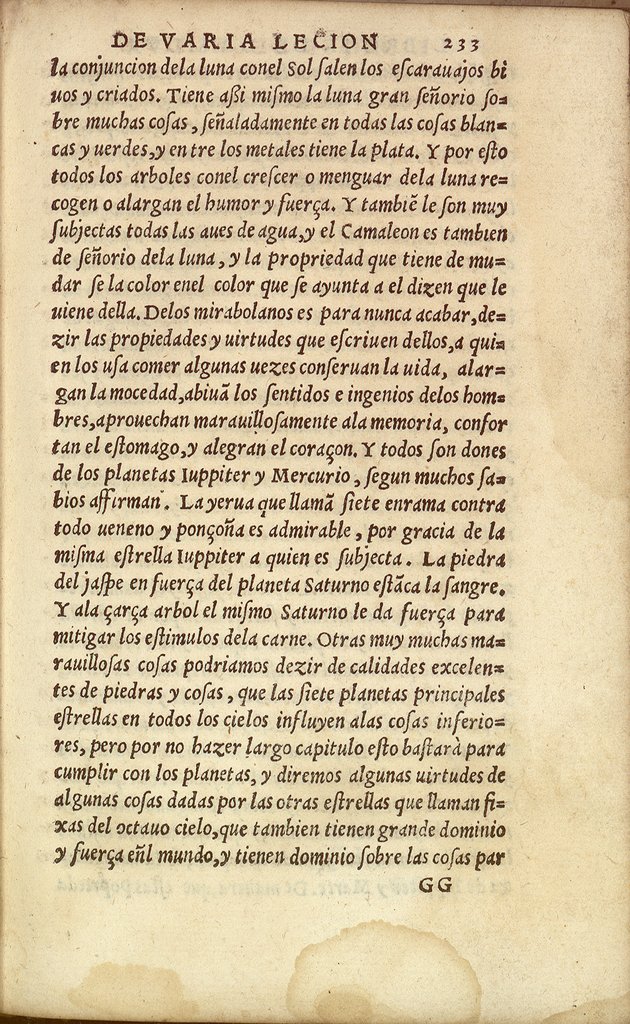 DE VARIA LECION 233
la conjuncion dela luna conel Sol ſalen los eſcarauajos bi
uos y criados. Tiene aßi miſmo la luna gran ſeñorio ſo=
bre muchas coſas, ſeñaladamente en todas las coſas blan=
cas y uerdes, y en tre los metales tiene la plata. Y por eſto
todos los arboles conel creſcer o menguar dela luna re=
cogen o alargan el humor y fuerça. Y tambiẽ le ſon muy
ſubjectas todas las aues de agua, y el Camaleon es tambien
de ſeñorio dela luna, y la propriedad que tiene de mu=
dar ſe la color enel color que ſe ayunta a el dizen que le
uiene della. Delos mirabolanos es para nunca acabar, de=
zir las propiedades y uirtudes que eſcriuen dellos, a qui=
en los uſa comer algunas uezes conſeruan la uida, alar=
gan la mocedad, abiuã los ſentidos e ingenios delos hom=
bres, aprouechan marauilloſamente ala memoria, confor
tan el eſtomago, y alegran el coraçon. Y todos ſon dones
de los planetas Iuppiter y Mercurio, ſegun muchos ſa=
bios affirman. La yerua que llamã ſiete enrama contra
todo ueneno y ponçoña es admirable, por gracia de la
miſma eſtrella Iuppiter a quien es ſubjecta. La piedra
del jaſpe en fuerça del planeta Saturno eſtãca la ſangre.
Y ala çarça arbol el miſmo Saturno le da fuerça para
mitigar los eſtimulos dela carne. Otras muy muchas ma=
rauilloſas coſas podriamos dezir de calidades excelen=
tes de piedras y coſas, que las ſiete planetas principales
eſtrellas en todos los cielos influyen alas coſas inferio=
res, pero por no hazer largo capitulo eſto baſtarà para
cumplir con los planetas, y diremos algunas uirtudes de
algunas coſas dadas por las otras eſtrellas que llaman fi=
xas del octauo cielo, que tambien tienen grande dominio
y fuerça eñl mundo, y tienen dominio ſobre las coſas par
GG